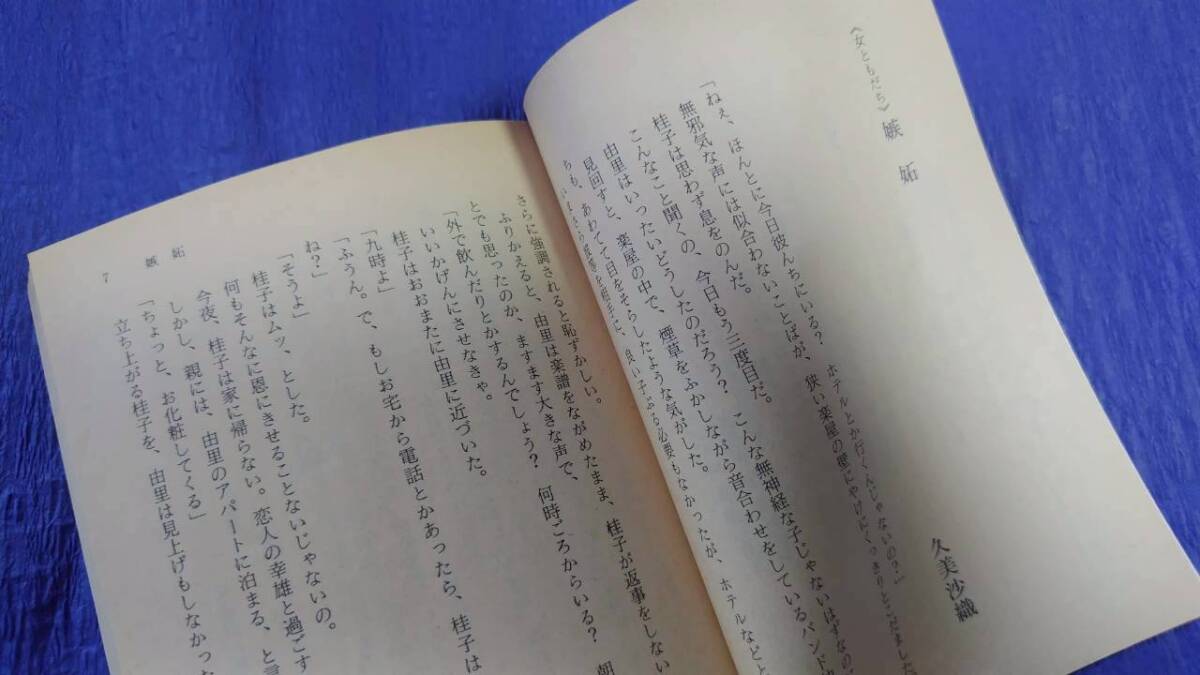 《女ともだち》嫉妬
久美沙織
「ねぇ、ほんとに今日彼んちにいる? ホテルとか行くんじゃないの?」
無邪気な声には似合わないことばが、狭い楽屋の壁にやけにくっきりとこだました
桂子は思わず息をのんだ。
こんなこと聞くの、今日もう三度目だ。
由里はいったいどうしたのだろう? こんな無神経な子じゃないはずなの
見回すと、楽屋の中で、煙草をふかしながら音合わせをしているバンド
ちも、あわてて目をそらしたような気がした。
いまさら彼等を相手に、良い子ぶる必要もなかったが、ホテルなどと
さらに強調されると恥ずかしい。
ふりかえると、由里は楽譜をながめたまま、桂子が返事をしない
とでも思ったのか、ますます大きな声で、
「外で飲んだりとかするんでしょう? 何時ごろからいる? 朝
いいかげんにさせなきゃ。
桂子はおおまたに由里に近づいた。
「九時よ」
「ふうん。で、もしお宅から電話とかあったら、桂子は
ね?」
「そうよ」
桂子はムッ、とした。
何もそんなに恩にきせることないじゃないの。
今夜、桂子は家に帰らない。恋人の幸雄と過ごす
しかし、親には、由里のアパートに泊まる、と言
「ちょっと、お化粧してくる」
立ち上がる桂子を、由里は見上げもしなかった
7 嫉妬